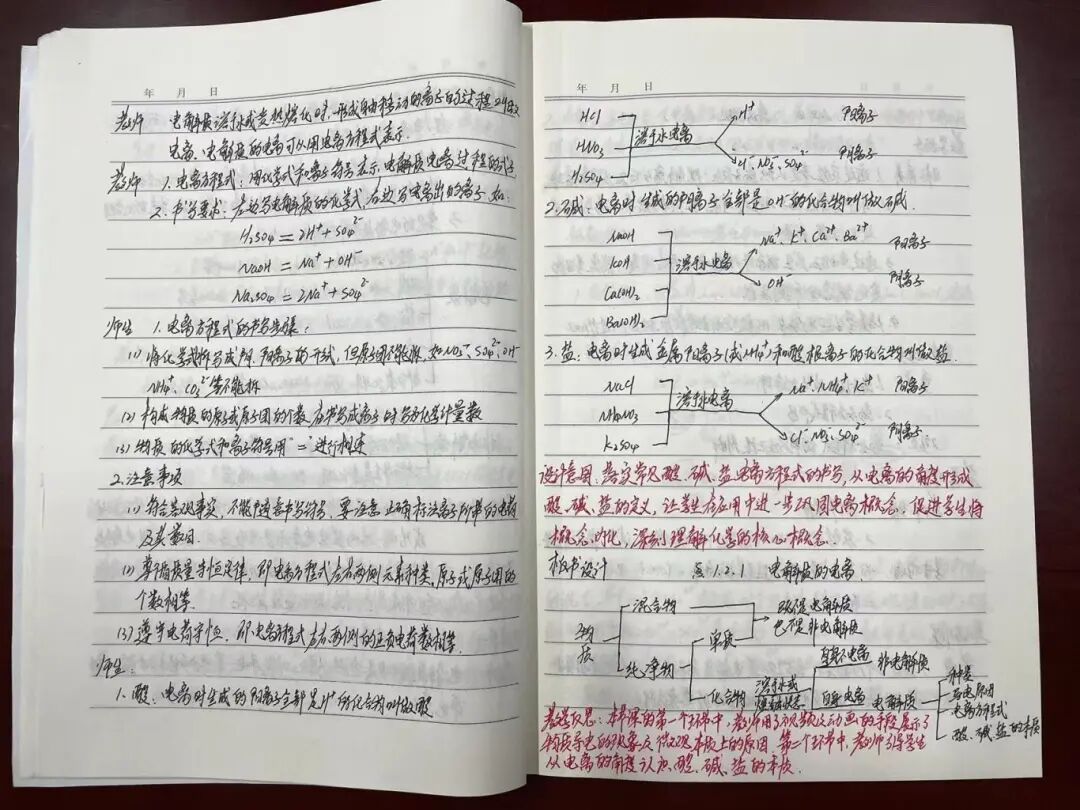 年 月 日
教师 电解质溶于水或受热熔化时,形成自由移动的离子的过程叫做
电离。电解质的电离可以用电离方程式表示。
教师 1.电离方程式:用化学式和离子符号表示电解质电离过程的式子
2.书写要求:左边写电解质的化学式,右边写电离出的离子.如:
H₂SO₄ = 2H⁺ + SO₄²⁻
NaOH = Na⁺ + OH⁻
Na₂SO₄ = 2Na⁺ + SO₄²⁻
师生 1.电离方程式的书写步骤:
(1) 将化学式拆写成阴、阳离子的形式,但原子团不能拆,如NO₃⁻、SO₄²⁻、OH⁻
NH₄⁺、CO₃²⁻等不能拆
(2) 构成物质的原子或原子团的个数在书写成离子时写为化学计量数
(3) 物质的化学式和离子符号用"="进行相连
2.注意事项
(1) 符合客观事实,不能随意书写符号,要注意正确标注离子所带的电荷
及其数目.
(2) 遵循质量守恒定律,即电离方程式左右两侧元素种类、原子或原子团的
个数相等.
(3) 遵守电荷守恒,即电离方程式左右两侧的正负电荷数相等.
师生:
1.酸:电离时生成的阳离子全部是H⁺的化合物叫做酸
年 月 日
HCl
HNO₃
H₂SO₄
溶于水电离
H⁺ 阳离子
Cl⁻.NO₃⁻.SO₄²⁻ 阴离子
2.碱:电离时生成的阴离子全部是OH⁻的化合物叫做碱.
NaOH
KOH
Ca(OH)₂
Ba(OH)₂
溶于水电离
Na⁺.K⁺.Ca²⁺.Ba²⁺ 阳离子
OH⁻ 阴离子
3.盐:电离时生成金属阳离子(或NH₄⁺)和酸根离子的化合物叫做盐.
NaCl
NH₄NO₃
K₂SO₄
溶于水电离
Na⁺.NH₄⁺.K⁺ 阳离子
Cl⁻.NO₃⁻.SO₄²⁻ 阴离子
设计意图:落实常见酸、碱、盐电离方程式的书写,从电离的角度形成
酸、碱、盐的定义,让学生在应用中进一步巩固电离概念,促进学生将
概念内化,深刻理解化学的核心概念.
板书设计 §1.2.1 电解质的电离
物质
混合物
纯净物
单质
化合物
既不是电解质
也不是非电解质
溶于水或
熔融状态
自身不电离 非电解质
自身电离 电解质
种类
导电原因
电离方程式
酸、碱、盐的本质
教学反思:本节课的第一个环节中,教师用了视频及动画的手段展示了
物质导电的现象及微观本质上的原因.第二个环节中,教师引导学生
从电离的角度认识酸、碱、盐的本质.